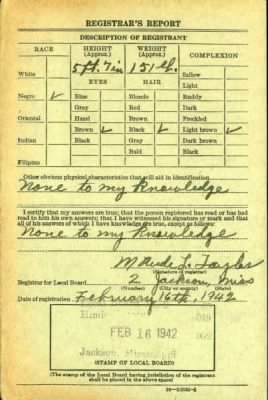 REGISTRAR'S REPORT
DESCRIPTION OF REGISTRANT
RACE HEIGHT (Approx.) WEIGHT (Approx.) COMPLEXION
5 ft. 7 in 151 lb.
White Sallow
EYES HAIR Light
Negro ✓ Blue Blonde Ruddy
Gray Red Dark
Oriental Hazel Brown Freckled
Brown ✓ Black ✓ Light brown ✓
Indian Black Gray Dark brown
Bald Black
Filipino
Other obvious physical characteristics that will aid in identification
None to my Knowledge
I certify that my answers are true; that the person registered has read or has had
read to him his own answers; that I have witnessed his signature or mark and that
all of his answers of which I have knowledge are true, except as follows:
None to my Knowledge
Maude L. Taylor
(Signature of registrar)
Registrar for Local Board 2 Jackson, Miss
(Number) (City or county) (State)
Date of registration February 16th, 1942
Hinds
FEB 16 1942
Jackson,
STAMP OF LOCAL BOARD
(The stamp of the Local Board having jurisdiction of the registrant
shall be placed in the above space)